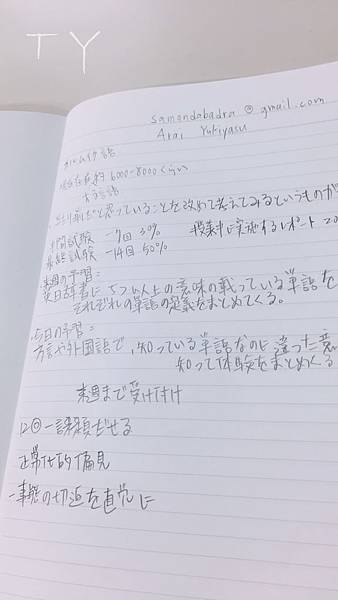 TY
samandabadra@gmail.com
Arai Yukiyasu
現在在約 6000-8000くらい
方言語
だと思っていることを改めて考えてみるというものが
中間試験 -7回 30%
授業中に実施するレポート 20
最終試験 -14回 50%
来週の予習:
英日辞書に5つ以上の意味の載っている単語を
それぞれの単語の定義をまとめてくる。
今日の予習:
方言や外国語で、知っている単語なのに違った意
知って体験をまとめくる
来週まで受け付け
12回 一課題だせる
正常化的偏見
事態の切迫を直視に